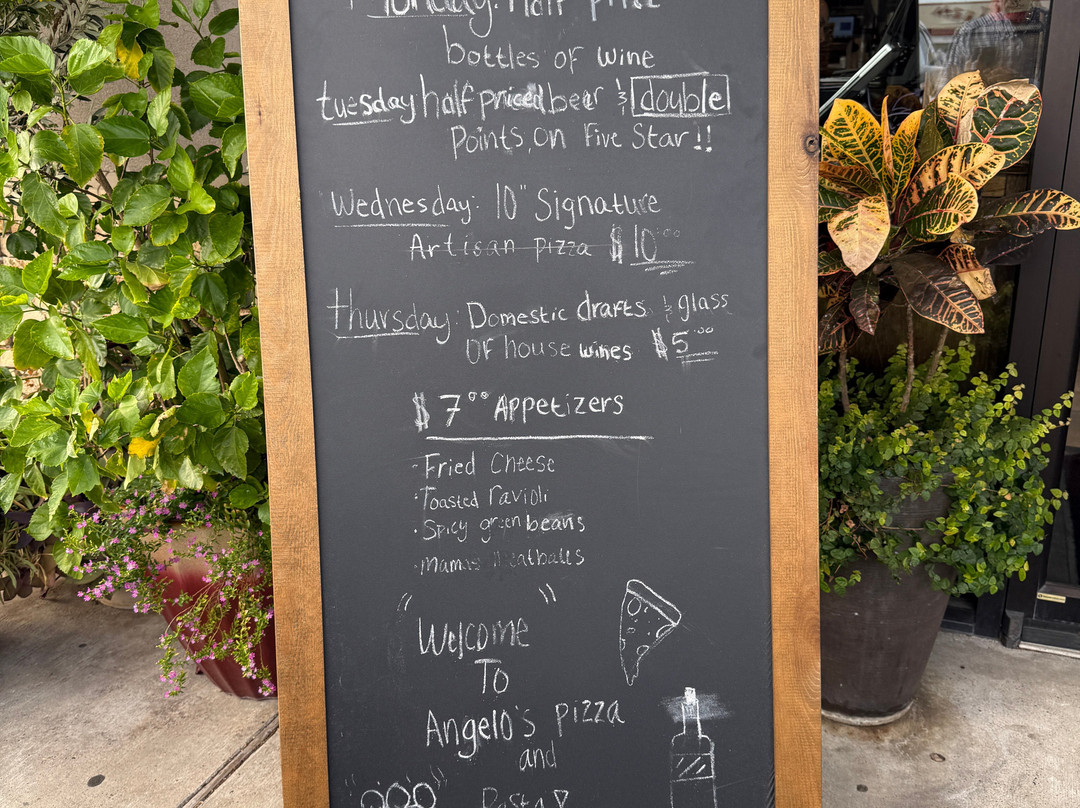 Monday: Half price
bottles of wine
tuesday half priced beer & double
Points, on Five Star!!
Wednesday: 10" Signature
Artisan pizza $10.00
Thursday: Domestic drafts & glass
OF house wines $5.00
$7.00 Appetizers
· Fried Cheese
· Toasted ravioli
· Spicy green beans
· Mamas Meatballs
" Welcome "
To
Angelo's pizza
and
Pasta